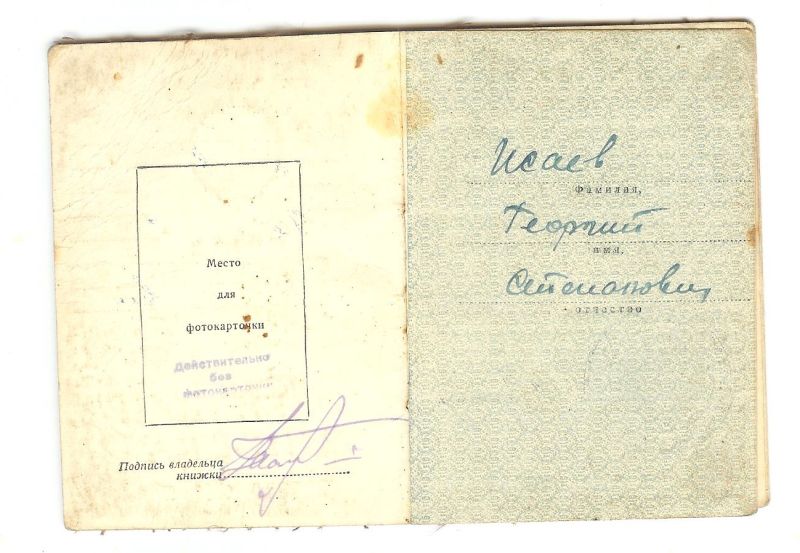 Место
для
фотокарточки
Действительно
без
фотокарточки
Подпись владельца
книжки
Исаев
фамилия,
Георгий
имя,
отчество